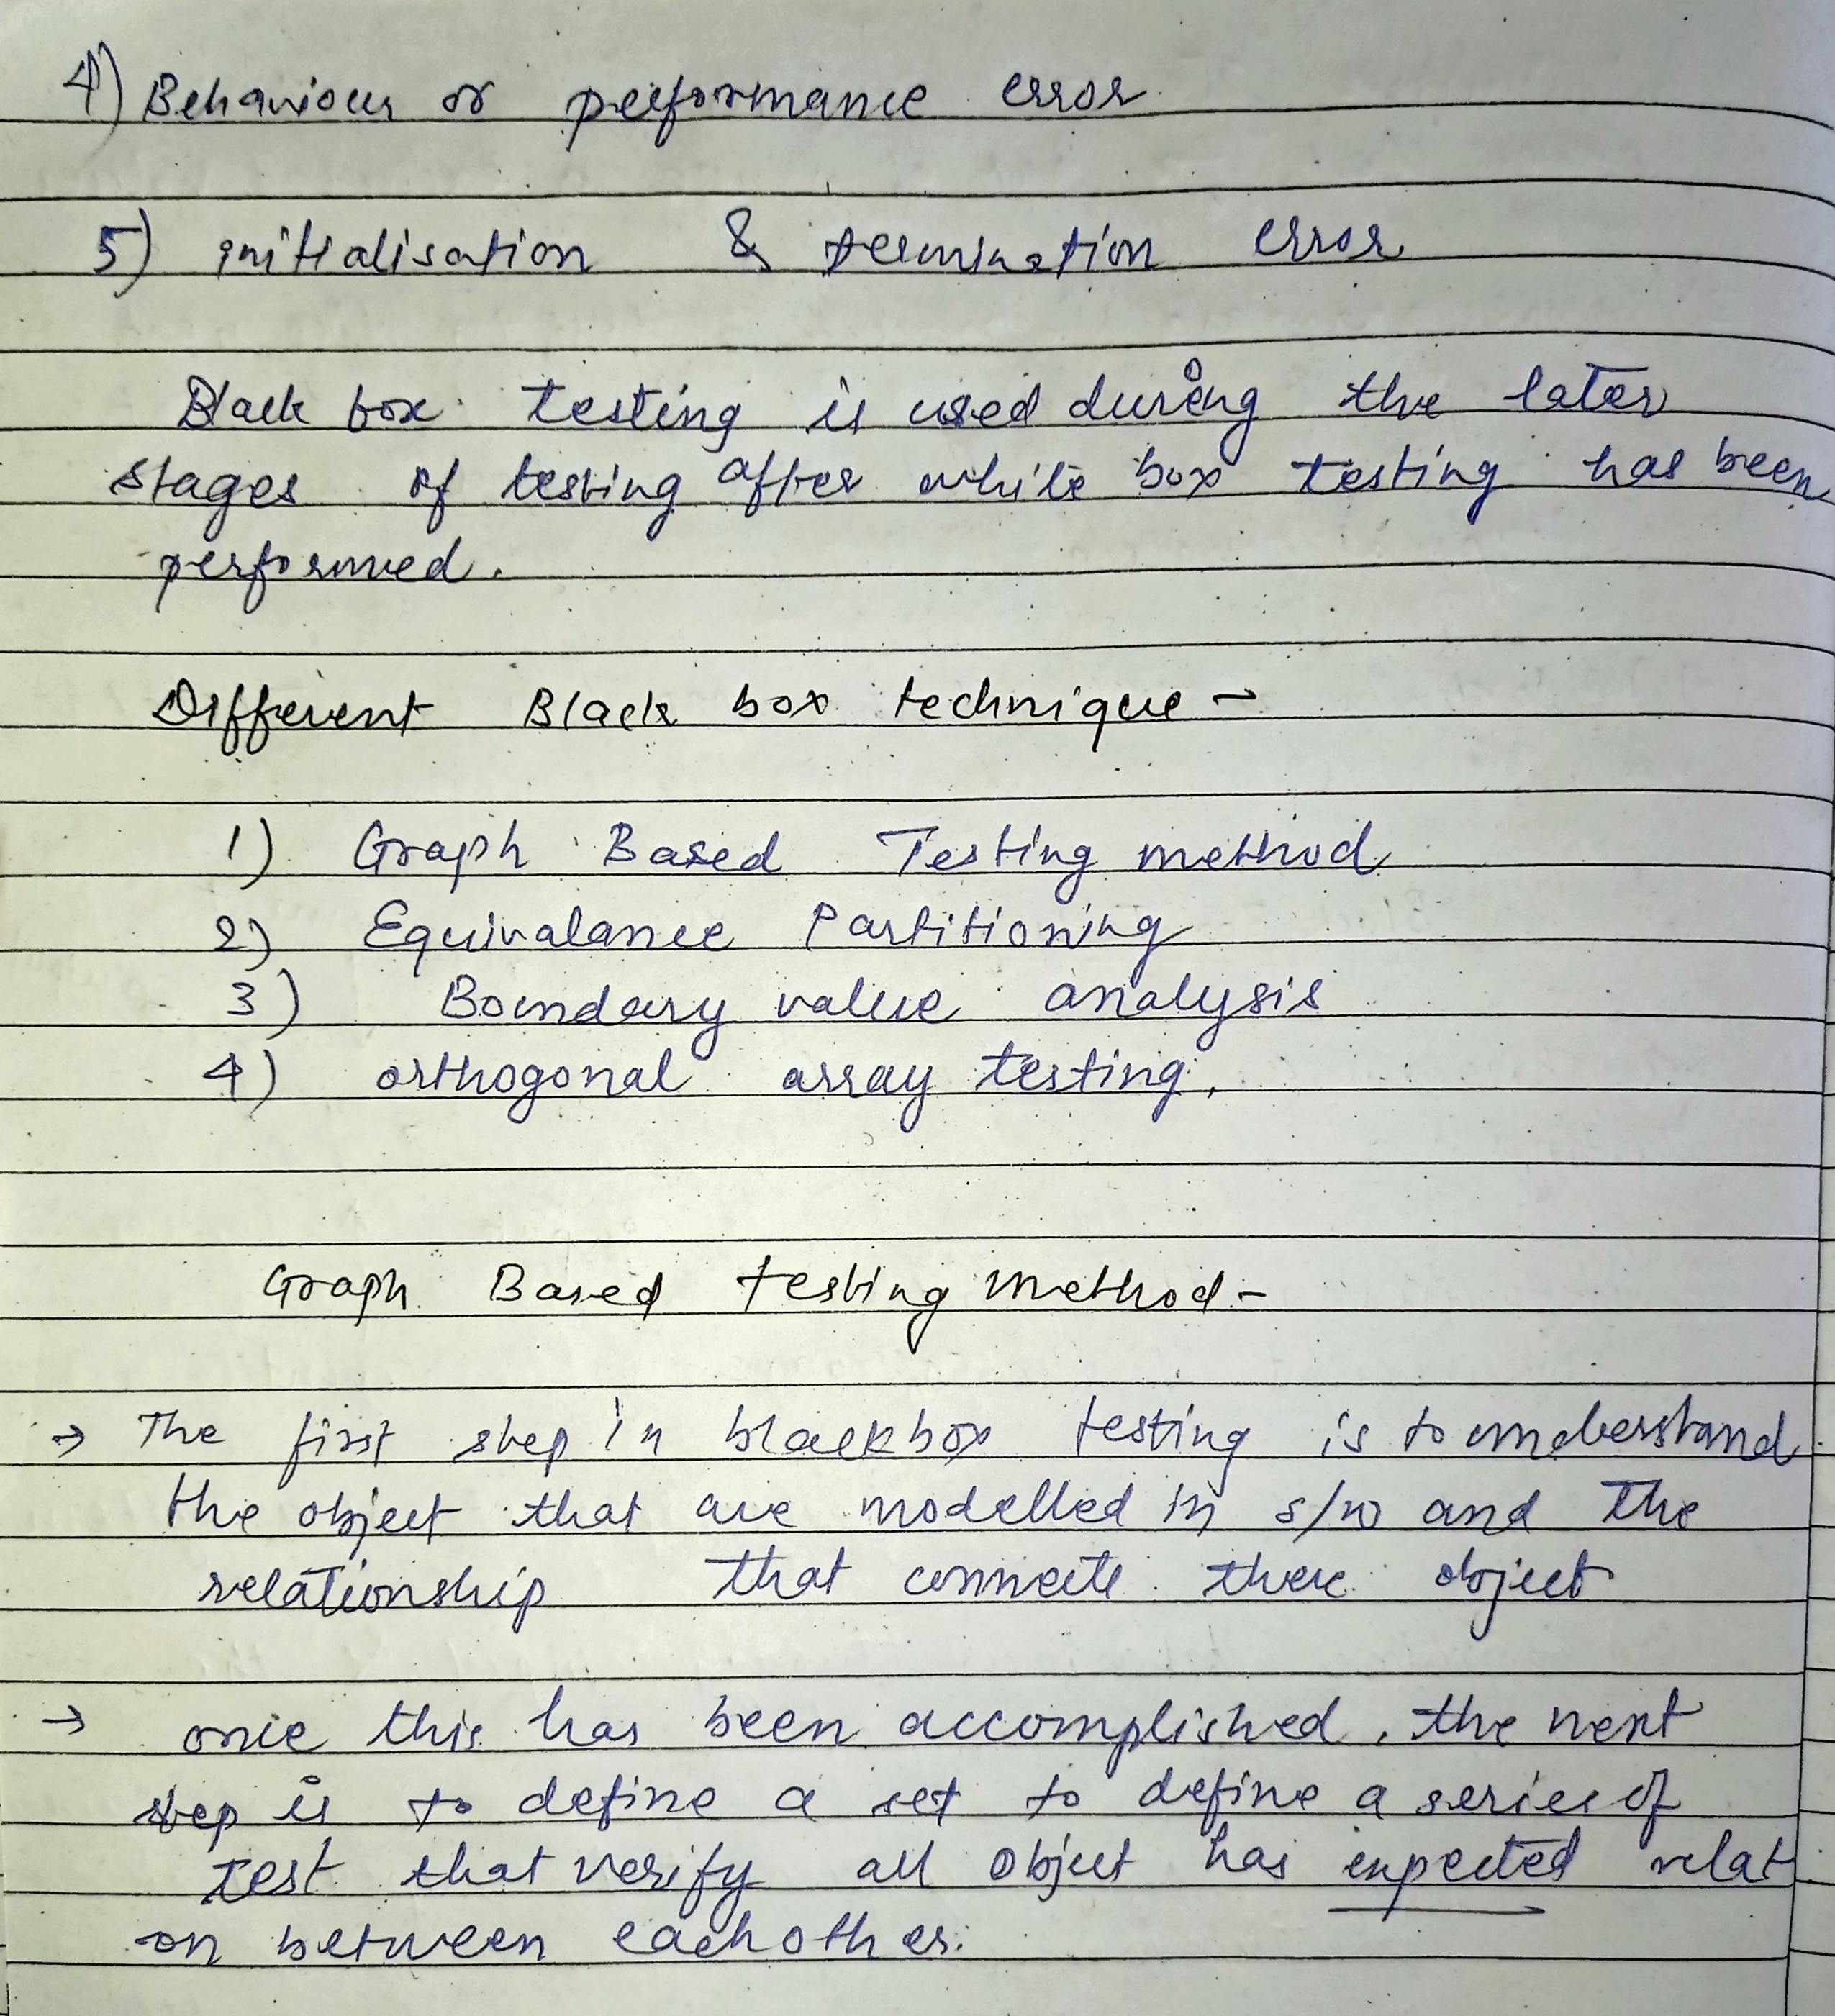 4) Behaviour or performance error
5) initialisation & termination error
Black box testing is used during the later
stages of testing after white box testing has been
performed.
Different Black box technique -
1) Graph Based Testing method
2) Equivalance Partitioning
3) Boundary value analysis
4) orthogonal array testing.
Graph Based testing method -
→ The first step in blackbox testing is to understand
the object that are modelled in s/w and the
relationship that connects these object
→ once this has been accomplished, the next
step is to define a set to define a series of
test that verify all object has expected relat
on between each other.